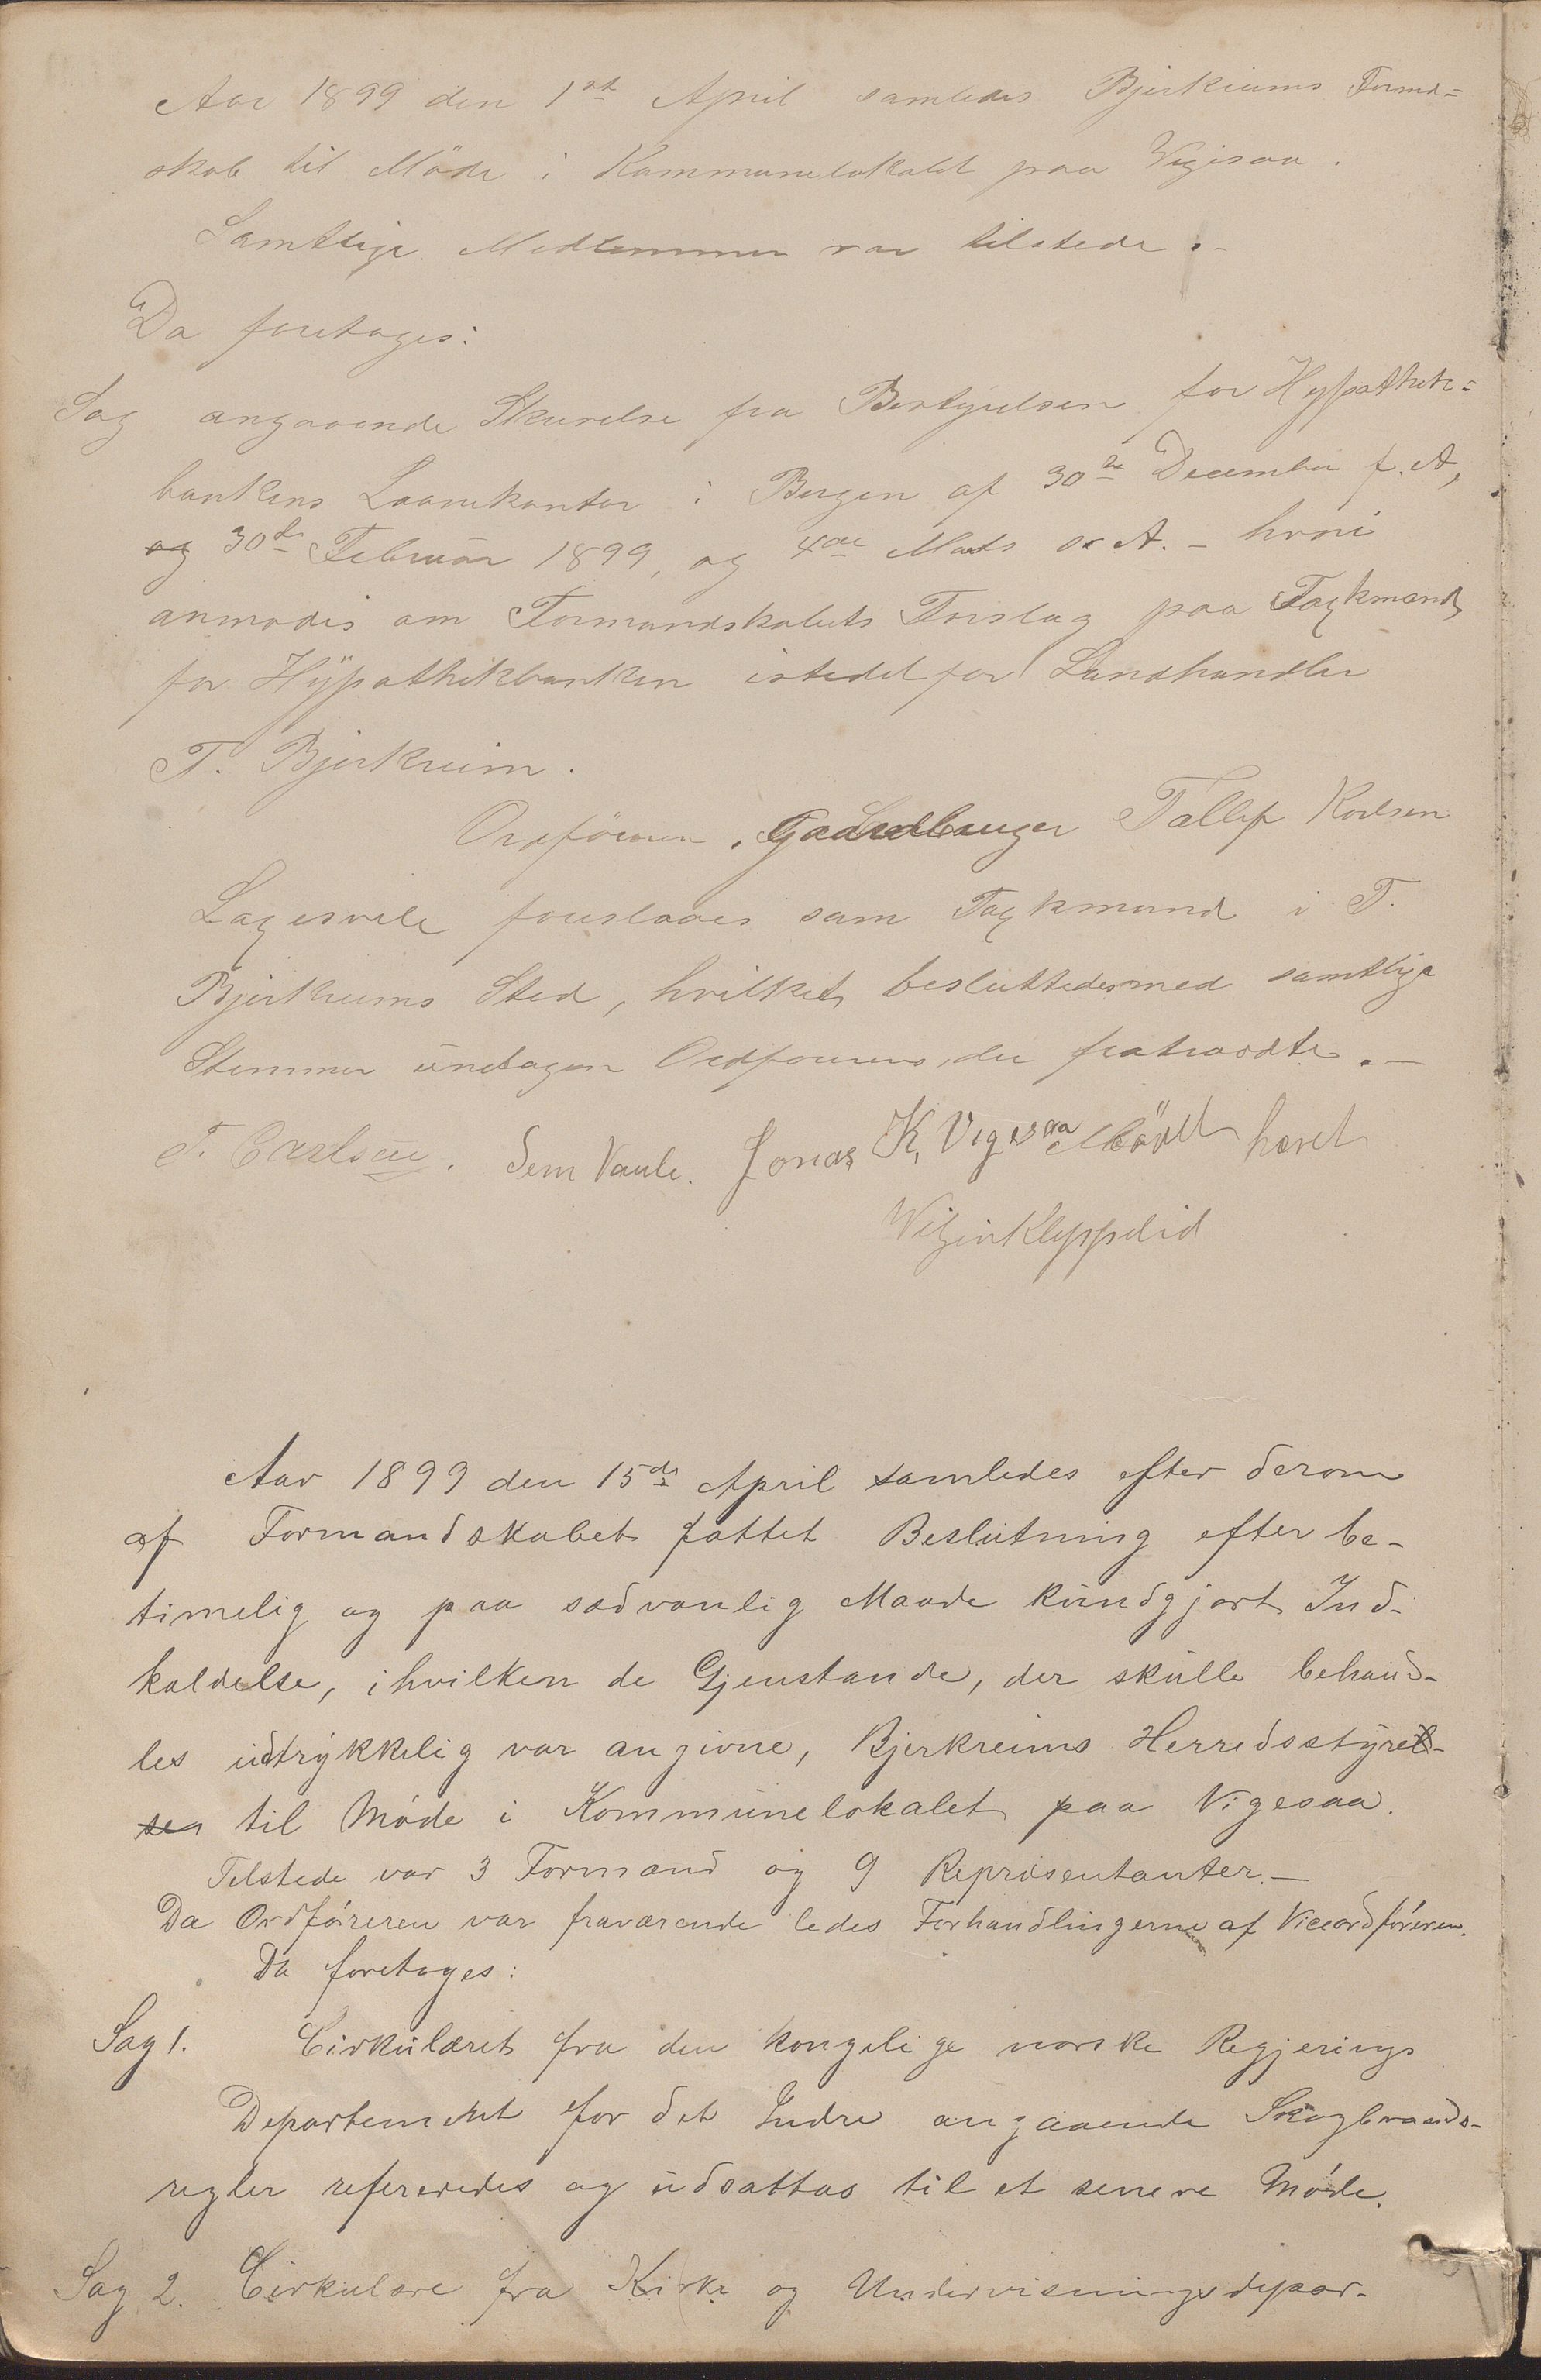 Aar 1899 den 1st April samledes Bjerkreims Formd=
skab til Möde i Kommunelokalet paa Vigesaa.
Samtlige Medlemmer var tilstede.-
Da foretoges:
Sag angaaende Skrivelse fra Bestyrelsen for Hypothek=
bankens Laanekontor i Bergen af 30te December f. A,
og 30te Februar 1899, og 4de Marts s. A. - hvori
anmodes om Formandskabets Forslag paa Takmænd
for Hypothekbanken istedet for Landhandler
T. Bjerkreim.
Ordföreren, Gaardbruger Tallef Karlsen
Lagesvele foreslaaes som Takmand i T.
Bjerkreims Sted, hvilket besluttedes med samtlige
Stemmer undtagen Ordforerens, der fratraadte.-
T. Carlsen. Sem Vaule. Jonas K, Vigesaa Mövel havet
Kleppelid
Aar 1899 den 15de April samledes efter derom
af Formandskabet fattet Beslutning efter be-
timelig og paa sædvanlig Maade kundgjort Ind-
kaldelse, i hvilken de Gjenstande, der skulle behand-
les udtrykkelig var angivne, Bjerkreims Herredsstyrel-
sen til Möde i Kommunelokalet paa Vigesaa.
Tilstede var 3 Formænd og 9 Repræsentanter.-
Da Ordföreren var fraværende ledes Forhandlingerne af Viceordföreren.
Da foretoges:
Sag 1. Cirkulæret fra den kongelige norske Regjerings
Departemenet for det Indre angaaende Skogbrands-
regler refereredes og udsattes til et senere Möde.
Sag 2. Cirkulære fra Kirke og Undervisningsdepar-